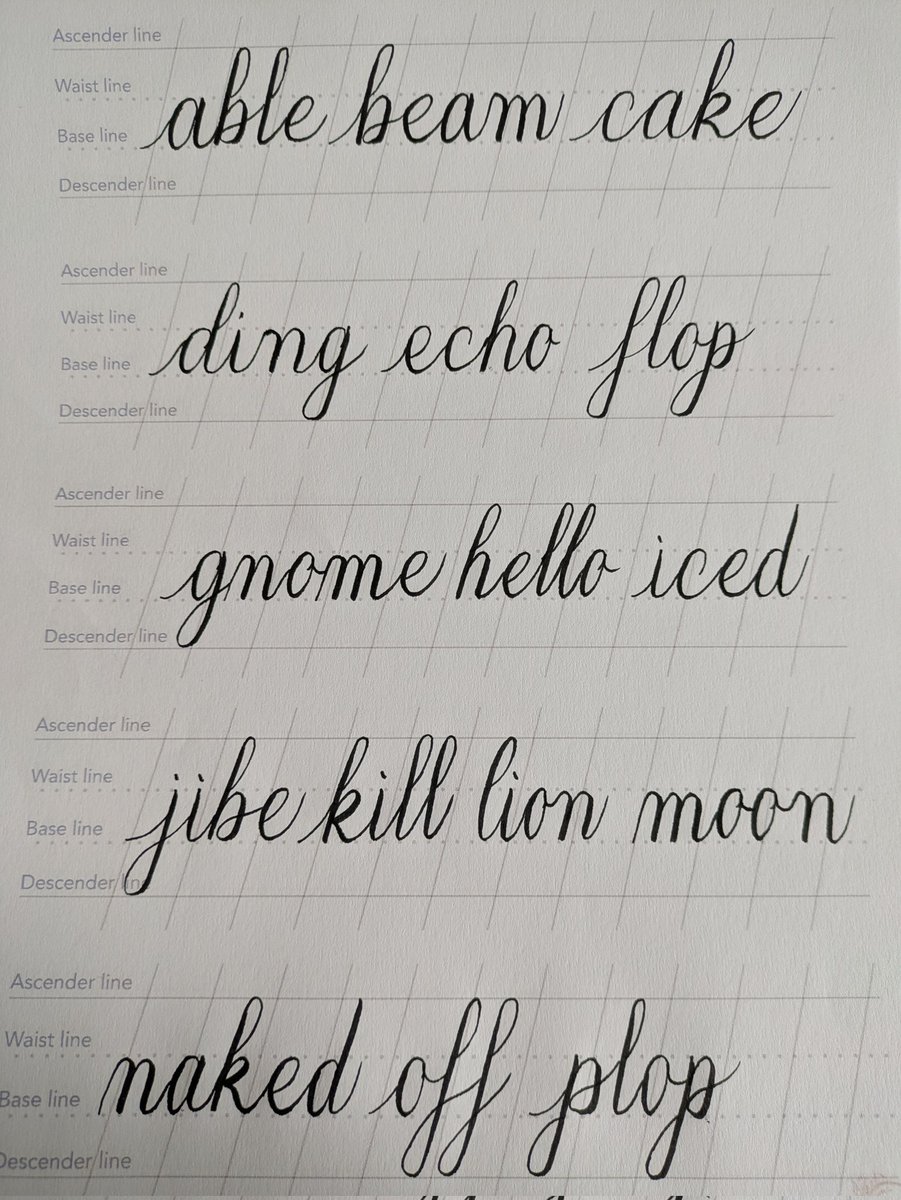 Ascender line
Waist line
able beam cake
Base line
Descender line
Ascender line
Waist line
ding echo flop
Base line
Descender line
Ascender line
Waist line
gnome hello iced
Base line
Descender line
Ascender line
Waist line
jibe kill lion moon
Base line
Descender line
Ascender line
Waist line
naked off plop
Base line
Descender line